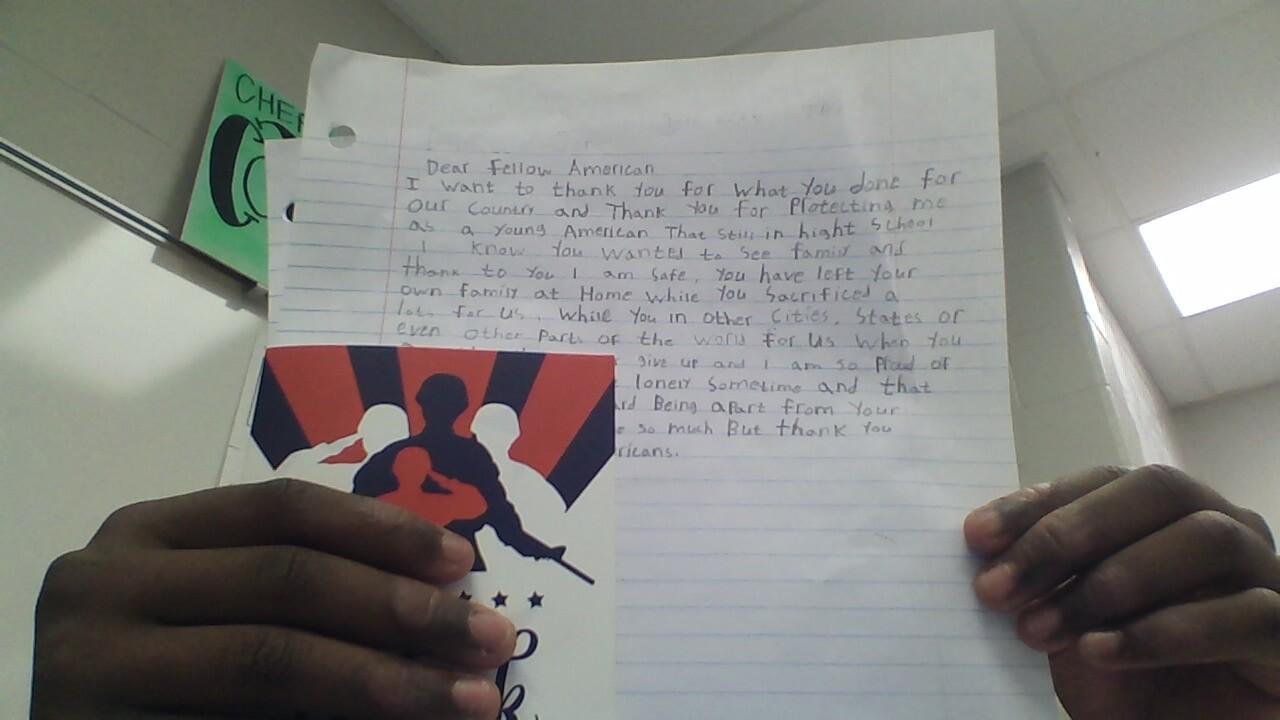 CHE
Dear Fellow American
I want to thank You for what You done for
our Country and Thank You for Protecting me
as a Young American That still in hight School
I know You wanted to see family and
thank to You I am safe, You have left Your
own family at Home while You sacrificed a
lots for us, while You in other Cities, States or
even other Parts of the world for us when You
give up and I am so Proud of
lonely sometime and that
Being apart from Your
so much But thank You